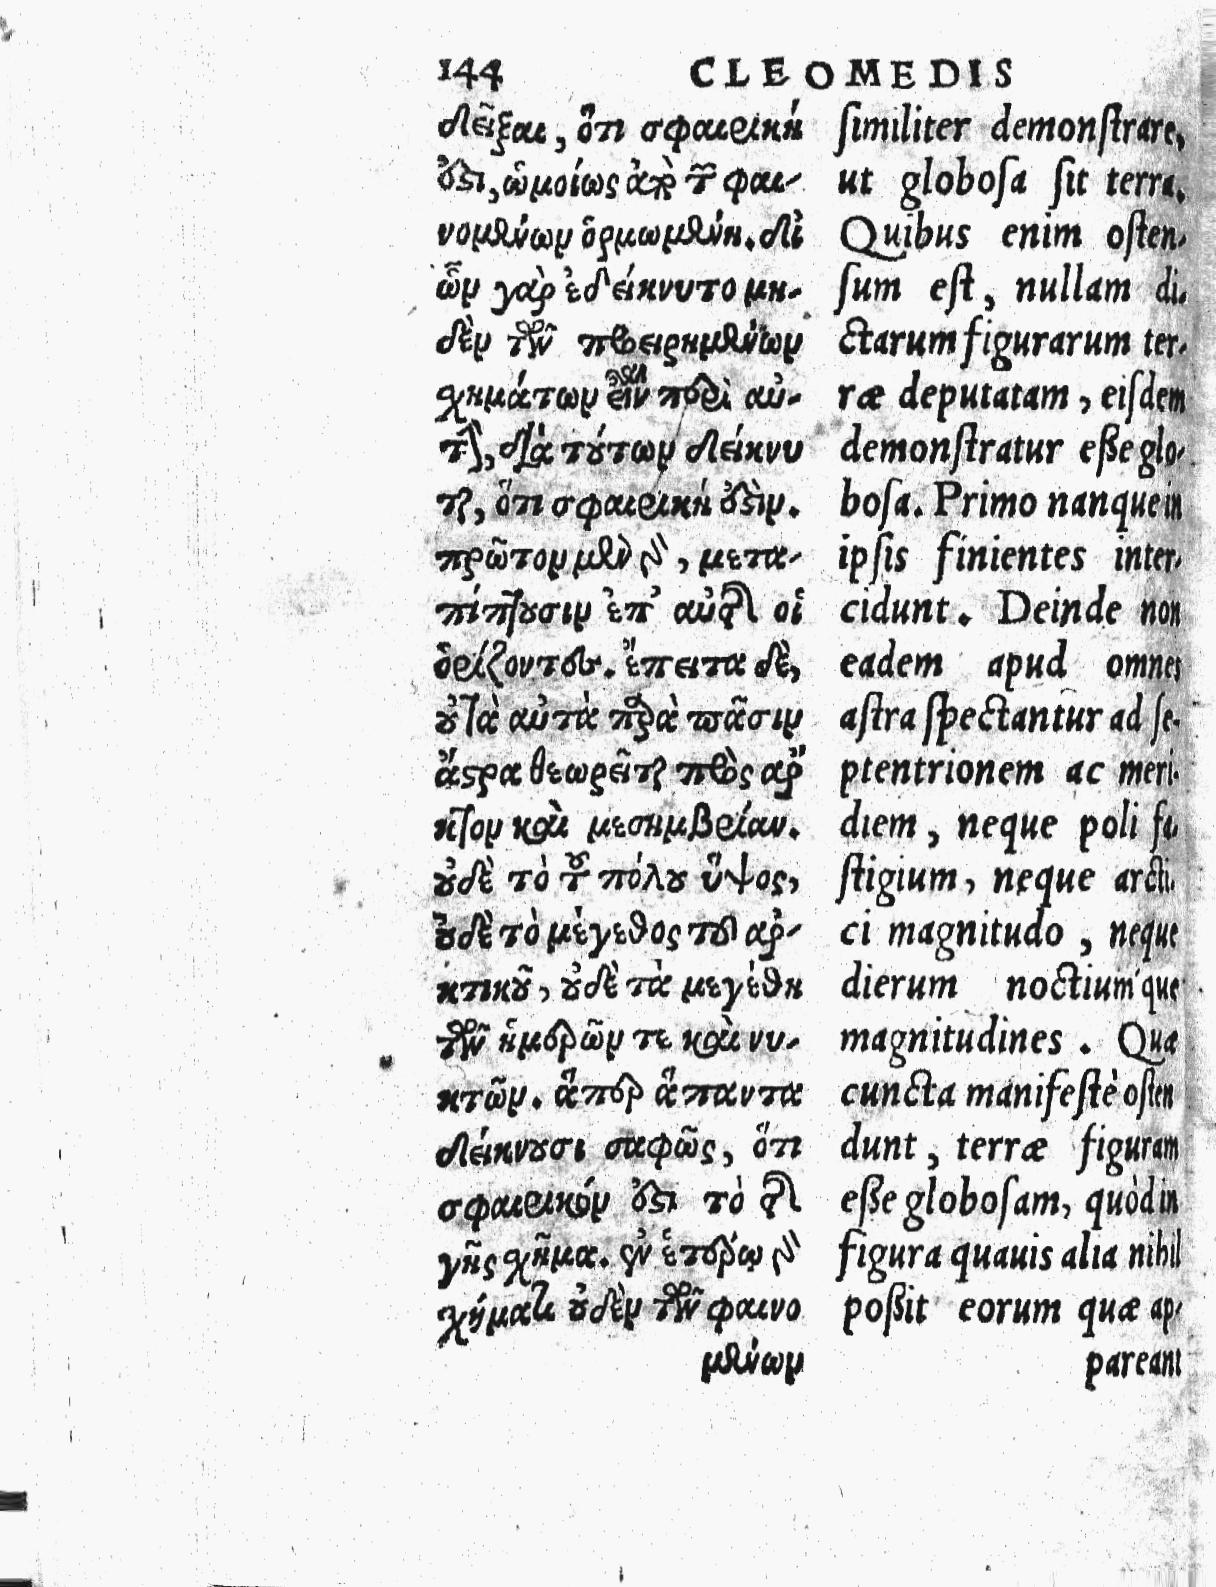 144 CLEOMEDIS
δεῖξαι, ὅτι σφαιρική
ἐστι, ὡμοίως ἀπὸ τῶν φαι-
νομένων ὁρμωμένη. δἰ
ὧν γὰρ ἐδείκνυτο μη-
δὲν τῶν προειρημένων
χημάτων εἶναι περὶ αὐ-
τὴν, διὰ τούτων δείκνυ
ται, ὅτι σφαιρική ἐστὶν.
πρῶτον μὲν γὰρ, μετα-
πίπτουσιν ἐπ' αὐτῆς οἱ
ὁρίζοντες. ἔπειτα δὲ,
οὐ τὰ αὐτὰ παρὰ πᾶσιν
ἄστρα θεωρεῖται πρὸς ἄρ
κτον καὶ μεσημβρίαν.
οὐδὲ τὸ τοῦ πόλου ὕψος,
οὐδὲ τὸ μέγεθος τοῦ ἀρ-
κτικοῦ, οὐδὲ τὰ μεγέθη
τῶν ἡμερῶν τε καὶ νυ-
κτῶν. ἅπερ ἅπαντα
δείκνυσι σαφῶς, ὅτι
σφαιρικόν ἐστι τὸ τῆς
γῆς χῆμα. ἐν ἑτέρῳ γὰρ
χήματι οὐδὲν τῶν φαινο
μένων
similiter demonstrare,
ut globosa sit terra.
Quibus enim osten-
sum est, nullam di-
ctarum figurarum ter-
ræ deputatam, eisdem
demonstratur esse glo-
bosa. Primo nanque in
ipsis finientes inter-
cidunt. Deinde non
eadem apud omnes
astra spectantur ad se-
ptentrionem ac meri-
diem, neque poli fa-
stigium, neque arcti-
ci magnitudo, neque
dierum noctium´que
magnitudines. Quæ
cuncta manifestè osten
dunt, terræ figuram
esse globosam, quòd in
figura quauis alia nihil
possit eorum quæ ap-
pareant